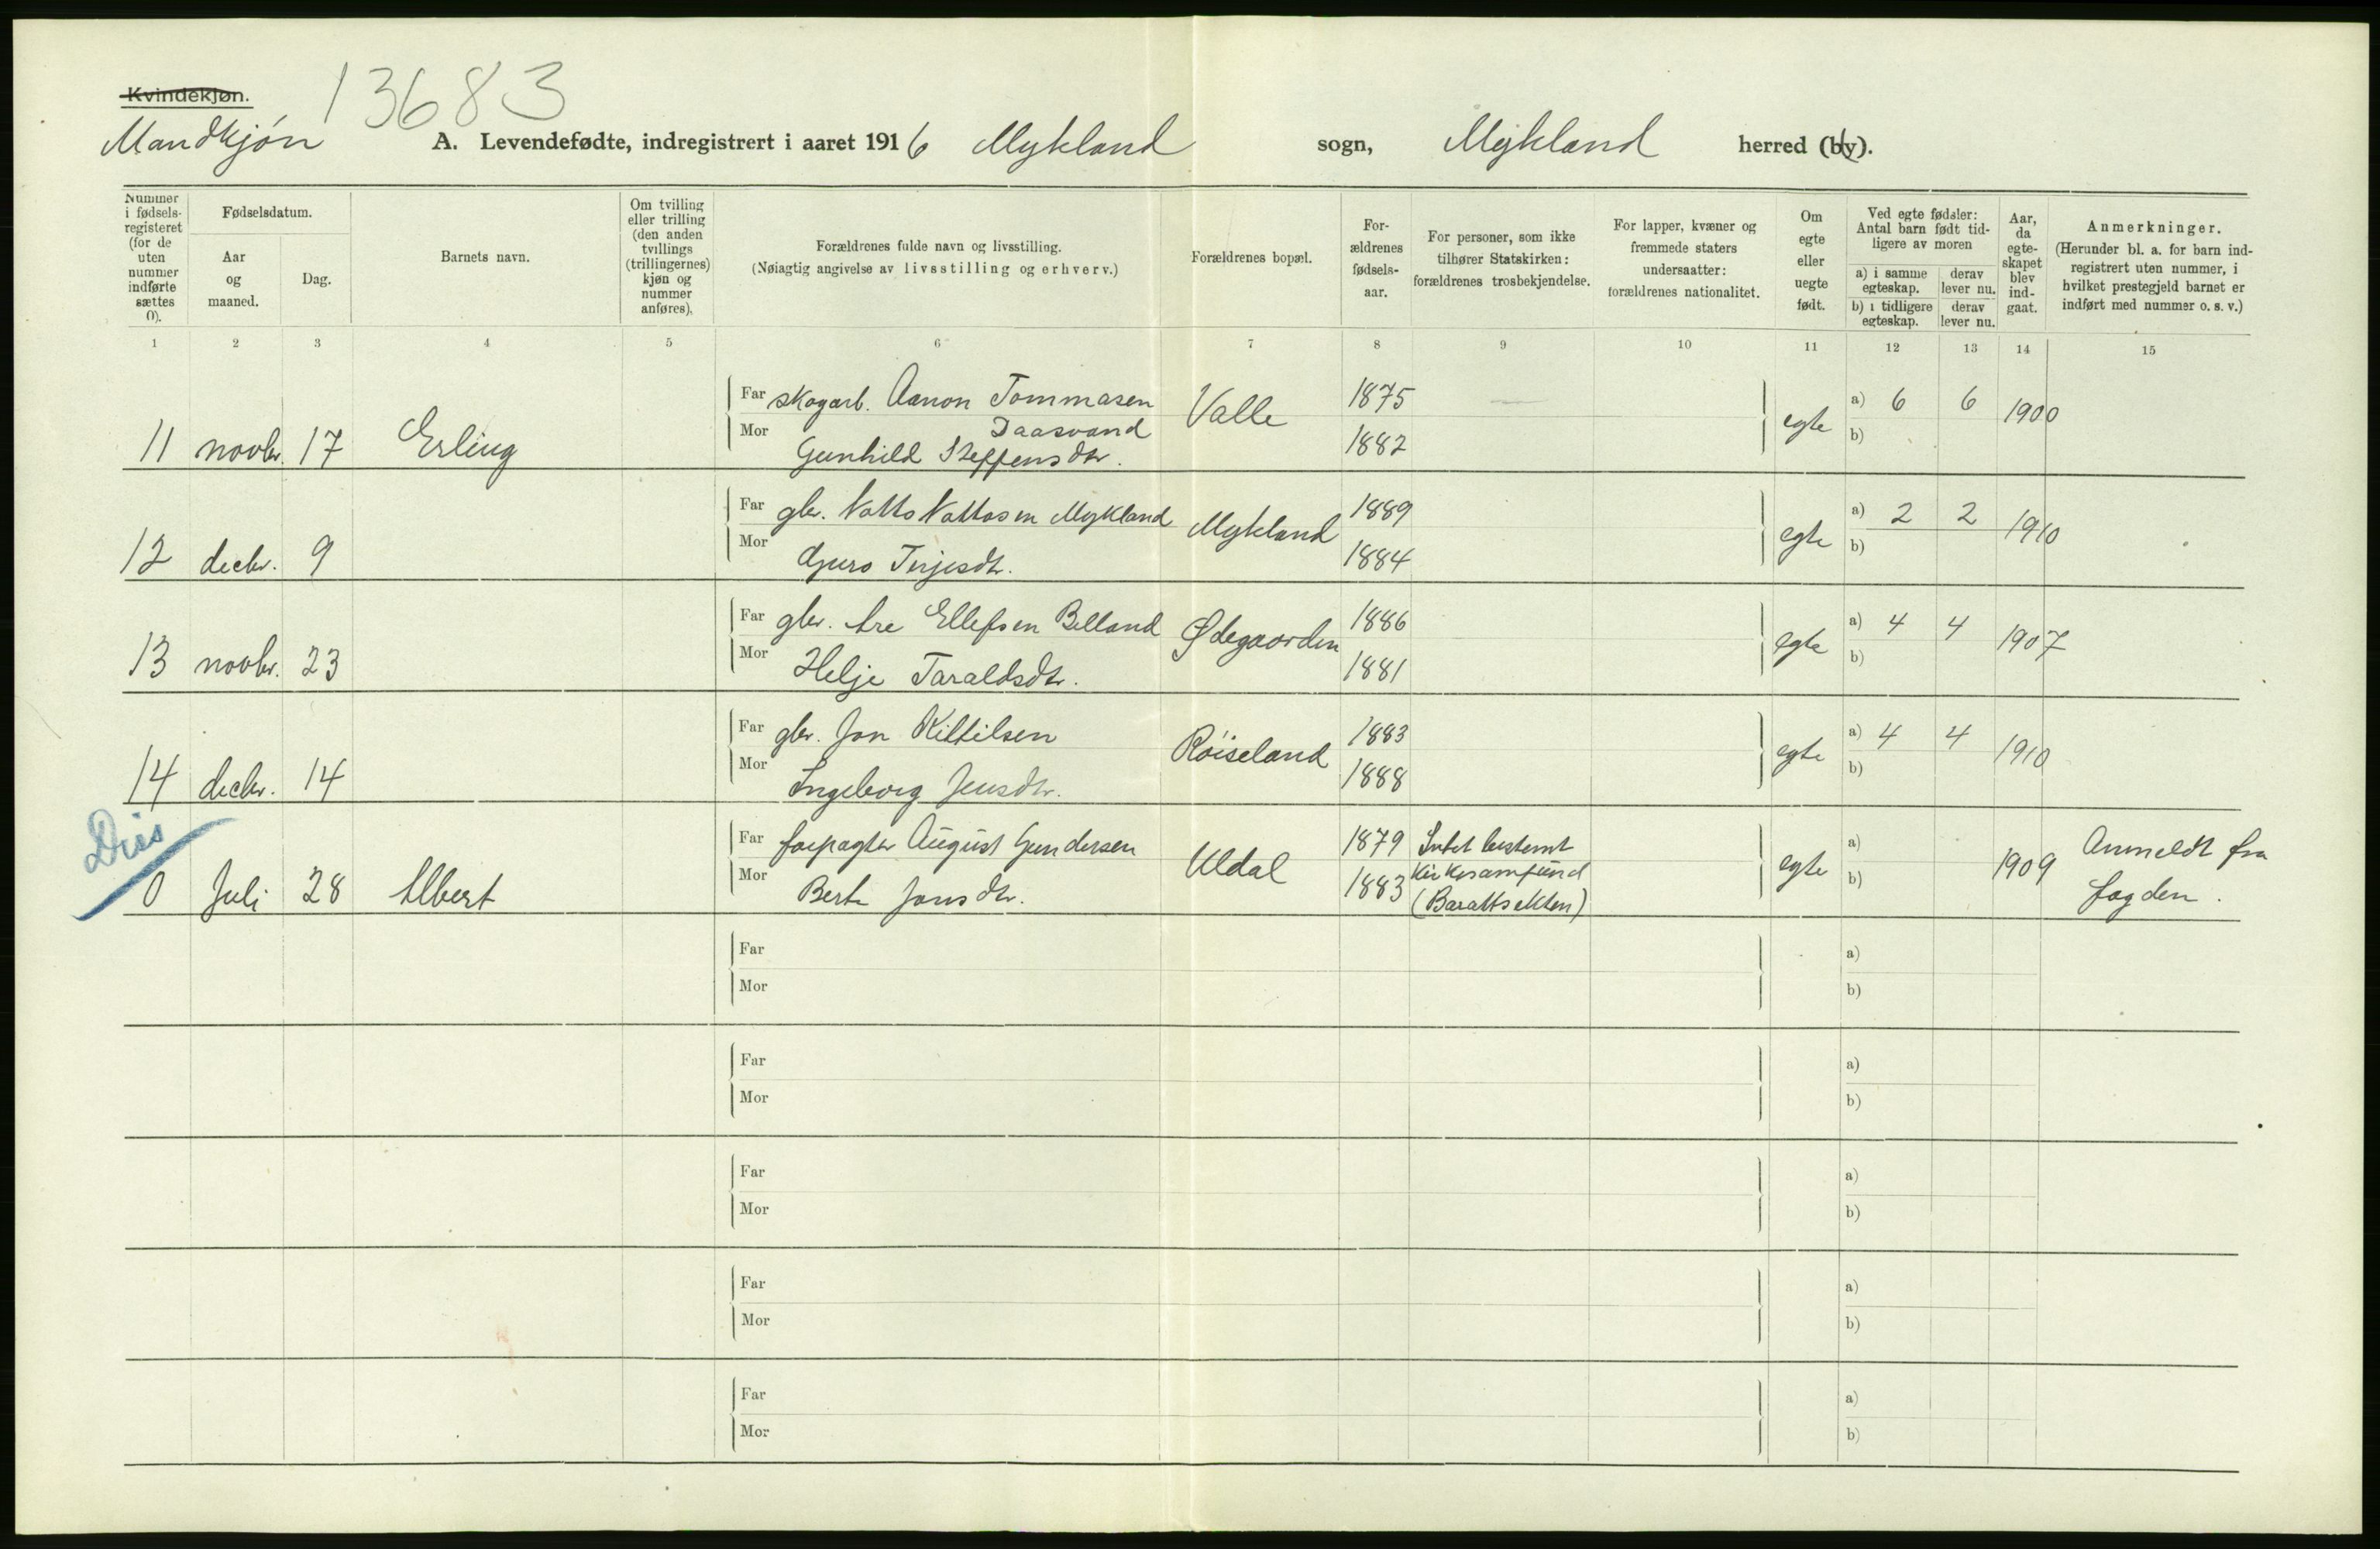 Kvindekjøn.
13683
Mandkjøn A. Levendefødte, indregistrert i aaret 1916 Mykland sogn, Mykland herred (by).
Nummer i fødsels-registeret (for de uten nummer indførte sættes 0).
Fødselsdatum.
Aar og maaned.
Dag.
Barnets navn.
Om tvilling eller trilling (den anden tvillings (trillingernes) kjøn og nummer anføres).
Forældrenes fulde navn og livsstilling.
(Nøiagtig angivelse av livsstilling og erhverv.)
Forældrenes bopæl.
For-ældrenes fødsels-aar.
For personer, som ikke tilhører Statskirken: forældrenes trosbekjendelse.
For lapper, kvæner og fremmede staters undersaatter: forældrenes nationalitet.
Om egte eller uegte født.
Ved egte fødsler: Antal barn født tid-ligere av moren
a) i samme egteskap. derav lever nu.
b) i tidligere egteskap. derav lever nu.
Aar, da egte-skapet blev ind-gaat.
Anmerkninger.
(Herunder bl. a. for barn ind-registrert uten nummer, i hvilket prestegjeld barnet er indført med nummer o. s. v.)
1 2 3 4 5 6 7 8 9 10 11 12 13 14 15
Far skogarb. Aanon Tommasen Valle 1875 — a) 6 6 1900
Mor Daasvand egte b)
11 novbr. 17 Erling Gunhild Steffensdtr. 1882
Far gbr. Notto Nottosen Mykland Mykland 1889 a) 2 2 1910
Mor egte b)
12 decbr. 9 Guro Terjesdtr. 1884
Far gbr. Are Ellefsen Belland Ødegaarden 1886 a) 4 4 1907
Mor egte b)
13 novbr. 23 Helje Taraldsdtr. 1881
Far gbr. Jon Kittilsen Røiseland 1883 a) 4 4 1910
Mor egte b)
14 decbr. 14 Ingeborg Jensdtr. 1888
Diss
Far forpagter August Gundersen Uldal 1879 Intet bestemt a) 1909 Anmeldt fra
Mor Kirkesamfund egte b)
0 Juli 28 Albert Berte Jonsdtr. 1883 (Barattsekten) fogden.
Far a)
Mor b)
Far a)
Mor b)
Far a)
Mor b)
Far a)
Mor b)
Far a)
Mor b)